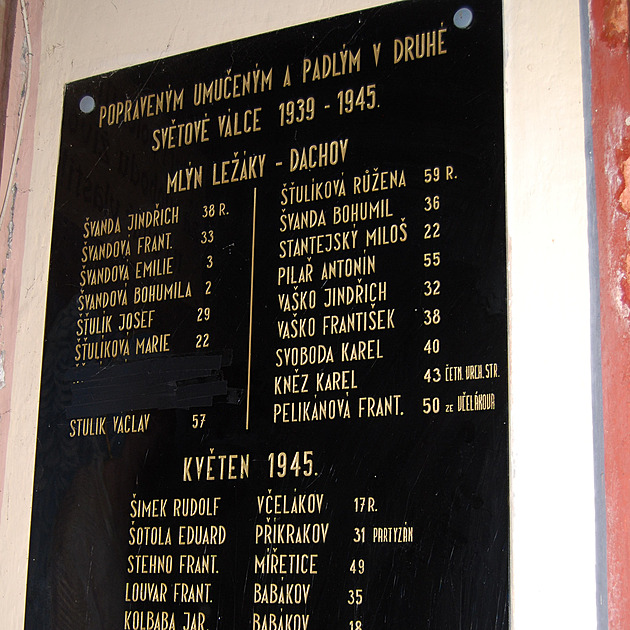 POPRAVENÝM UMUČENÝM A PADLÝM V DRUHÉ
SVĚTOVÉ VÁLCE 1939 - 1945.
MLÝN LEŽÁKY - DACHOV
ŠVANDA JINDŘICH 38 R.
ŠVANDOVÁ FRANT. 33
ŠVANDOVÁ EMILIE 3
ŠVANDOVÁ BOHUMILA 2
ŠŤULÍK JOSEF 29
ŠŤULÍKOVÁ MARIE 22
STULIK VACLAV 57
ŠŤULÍKOVÁ RŮŽENA 59 R.
ŠVANDA BOHUMIL 36
STANTEJSKÝ MILOŠ 22
PILAŘ ANTONÍN 55
VAŠKO JINDŘICH 32
VAŠKO FRANTIŠEK 38
SVOBODA KAREL 40
KNĚZ KAREL 43 ČETN. VRCH. STR.
PELIKÁNOVÁ FRANT. 50 ZE VČELÁKOVA
KVĚTEN 1945.
ŠIMEK RUDOLF VČELÁKOV 17 R.
ŠOTOLA EDUARD PŘÍKRAKOV 31 PARTYZÁN
STEHNO FRANT. MIŘETICE 49
LOUVAR FRANT. BABÁKOV 35
KOLBABA JAR. BABÁKOV 18